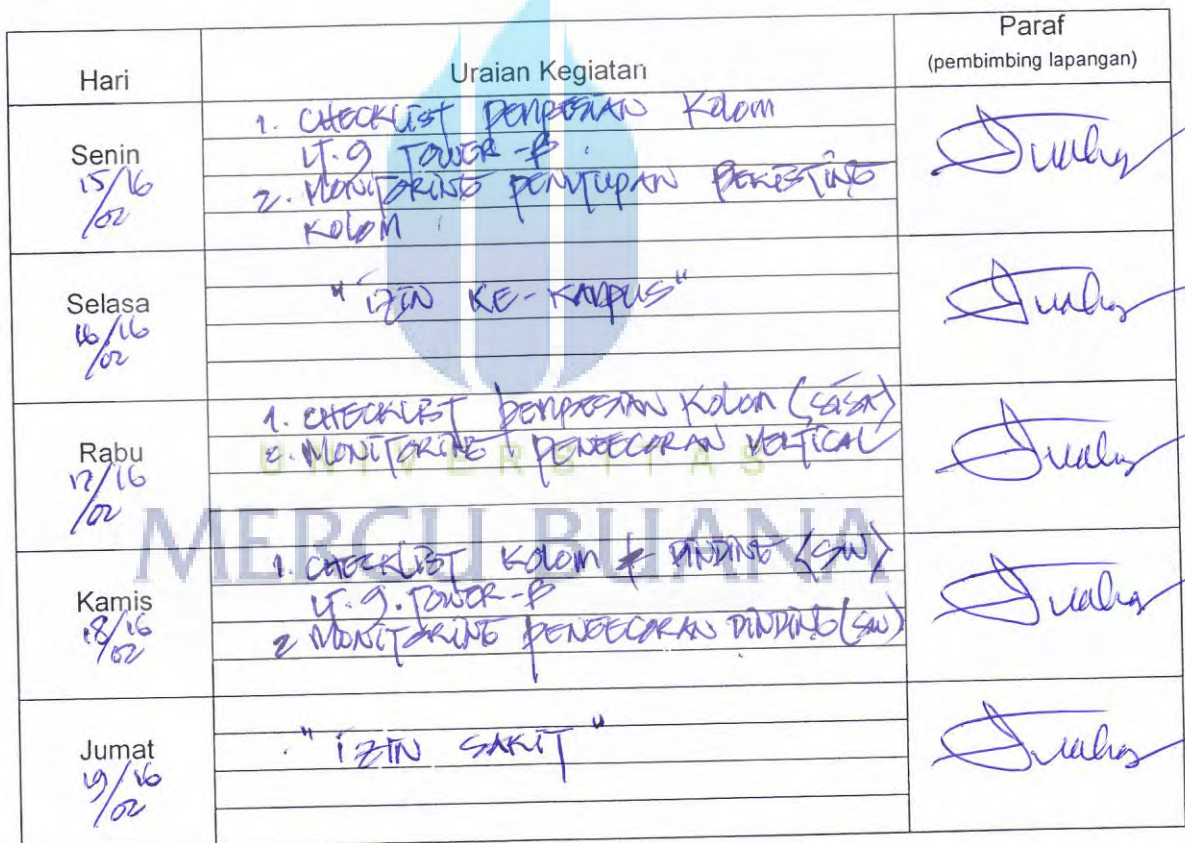 Hari Uraian Kegiatan Paraf
(pembimbing lapangan)
Senin
15/16
/02
1. CHECKLIST PEMBESIAN KOLOM
LT. 9 TOWER-B
2. MONITORING PENUTUPAN BEKISTING
KOLOM
Selasa
16/16
/02
"IZIN KE-KAMPUS"
Rabu
17/16
/02
1. CHECKLIST PEMBESIAN KOLOM (SISA)
2. MONITORING PENGECORAN VERTICAL
UNIVERSITAS
MERCU BUANA
Kamis
18/16
/02
1. CHECKLIST KOLOM & DINDING (SW)
LT. 9. TOWER-B
2 MONITORING PENGECORAN DINDING (SW)
Jumat
19/16
/02
"IZIN SAKIT"